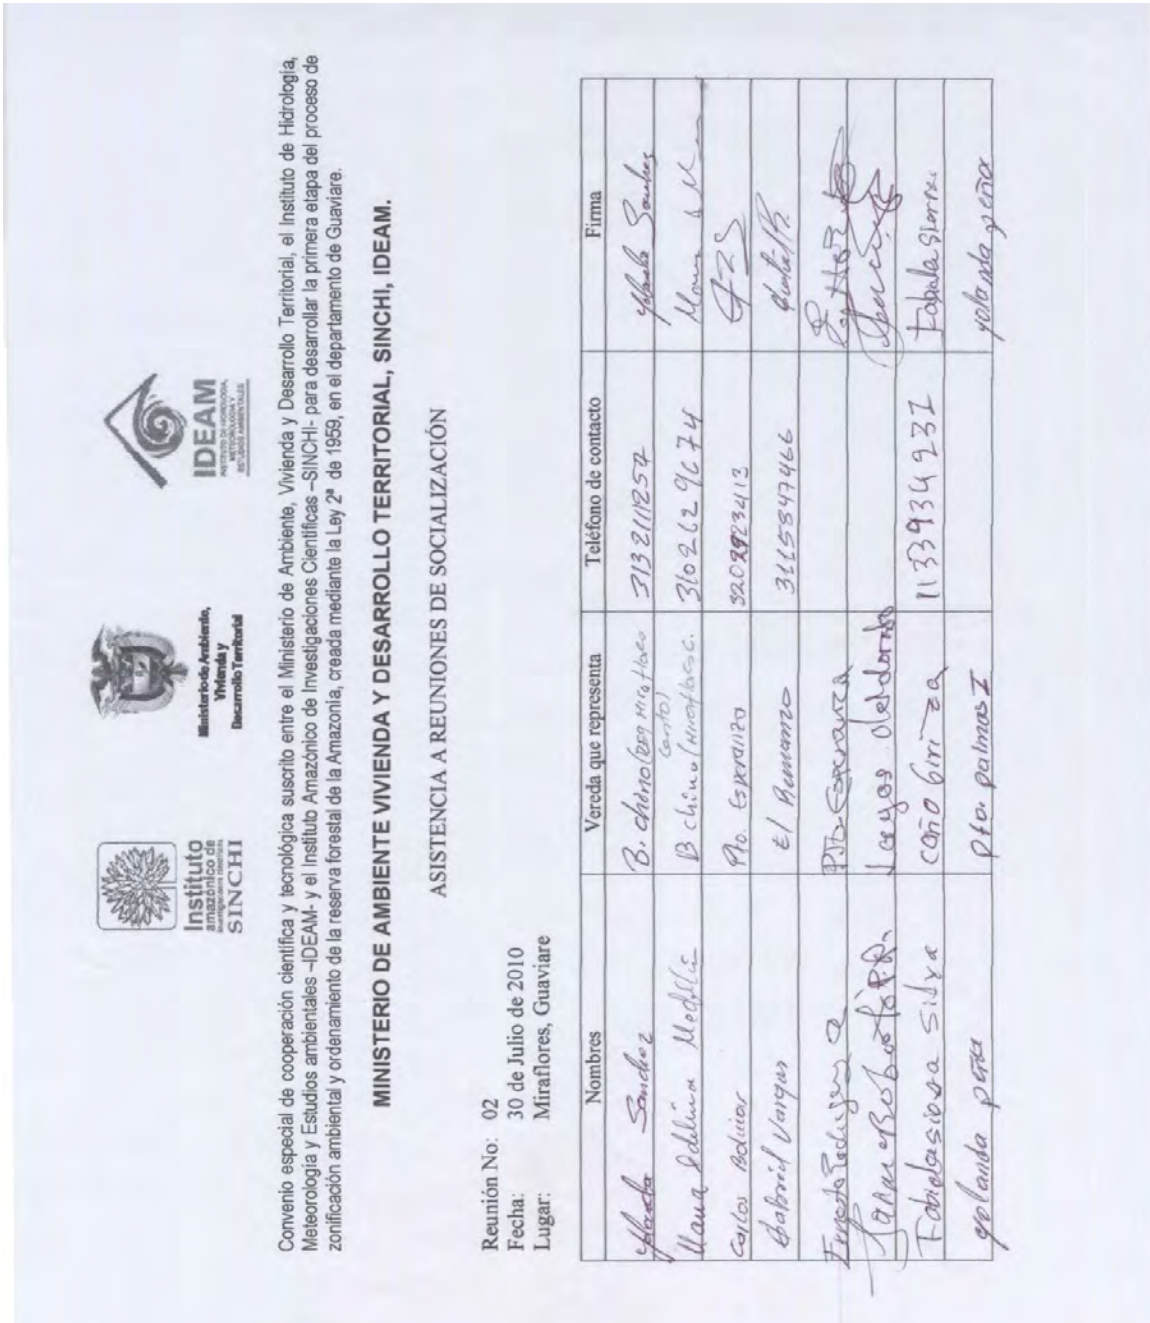 Instituto
amazónico de
investigaciones científicas
SINCHI
Ministerio de Ambiente,
Vivienda y
Desarrollo Territorial
IDEAM
INSTITUTO DE HIDROLOGÍA,
METEOROLOGÍA Y
ESTUDIOS AMBIENTALES
Convenio especial de cooperación científica y tecnológica suscrito entre el Ministerio de Ambiente, Vivienda y Desarrollo Territorial, el Instituto de Hidrología,
Meteorología y Estudios ambientales –IDEAM- y el Instituto Amazónico de Investigaciones Científicas –SINCHI- para desarrollar la primera etapa del proceso de
zonificación ambiental y ordenamiento de la reserva forestal de la Amazonia, creada mediante la Ley 2ª de 1959, en el departamento de Guaviare.
MINISTERIO DE AMBIENTE VIVIENDA Y DESARROLLO TERRITORIAL, SINCHI, IDEAM.
ASISTENCIA A REUNIONES DE SOCIALIZACIÓN
Reunión No: 02
Fecha: 30 de Julio de 2010
Lugar: Miraflores, Guaviare
Nombres Vereda que representa Teléfono de contacto Firma
Sanchez B. chino 3132111257 Sanchez
Maria 3102629674
Carlos Bolivar Pto. Esperanza
Gabriel Vargas El Remanso 3115847466
Ernesto Rodriguez
Lagos del dorado
Silva caño 11339342 Fabiola
yolanda peña pto. palmas I yolanda peña